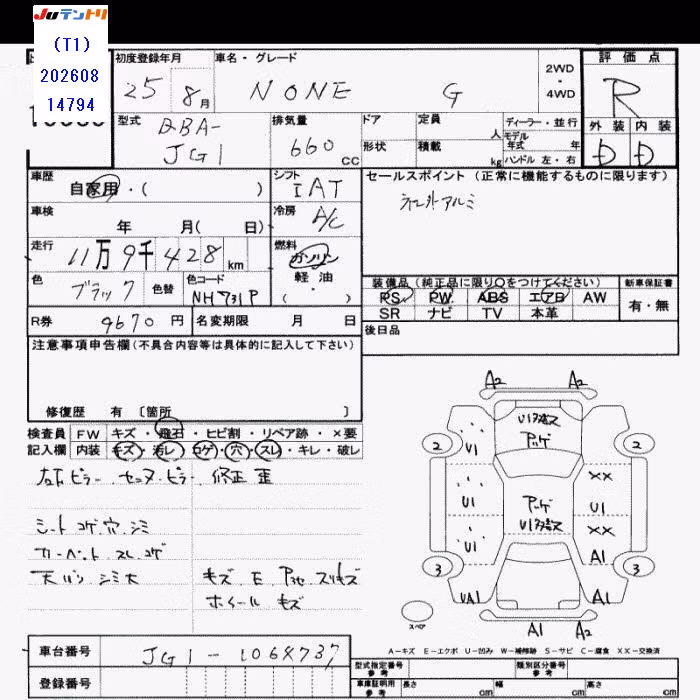 Juテントリ
(T1)
202608
14794
初度登録年月
25 8月
車名・グレード
N ONE G
2WD
・
4WD
評価点
R
外装 内装
D D
型式
DBA-
JG1
排気量
660 CC
ドア
形状
定員 人
積載 kg
ディーラー・並行
モデル
年式 年
ハンドル 左・右
車歴
自家用・( )
シフト
IAT
セールスポイント (正常に機能するものに限ります)
社外アルミ
車検
年 月( 日)
冷房
A/C
走行
11万9千428 km
燃料
ガソリン
軽・油
( ・ )
色
ブラック
色替
色コード
NH731P
装備品 (純正品に限り○をつけてください)
PS PW ABS エアB AW
SR ナビ TV 本革
新車保証書
有・無
R券 9670円
名変期限 月 日
後日品
注意事項申告欄 (不具合内容等は具体的に記入して下さい)
修復歴 有 〔箇所 〕
検査員 FW キズ・飛石・ヒビ割・リペア跡・×要
記入欄 内装 キズ・汚レ・コゲ・穴・スレ・キレ・破レ
修正 歪
シート コゲ 穴 シミ
カーペット スレ コゲ
天バリ シミ大
キズ E
ホイール キズ
A2 A2
U1
アッゲ
2 2
U1 ××
U1
U1
アッゲ
U1
××
A1
3 3
UA1 A1
スペア
A1 A2
A-キズ E-エクボ U-凹み W-補修跡 S-サビ C-腐食 XX-交換済
車台番号 JG1-1064737
登録番号
型式指定番号
参考
類別区分番号
参考
車庫証明用
参考
長さ cm 幅 cm 高さ cm